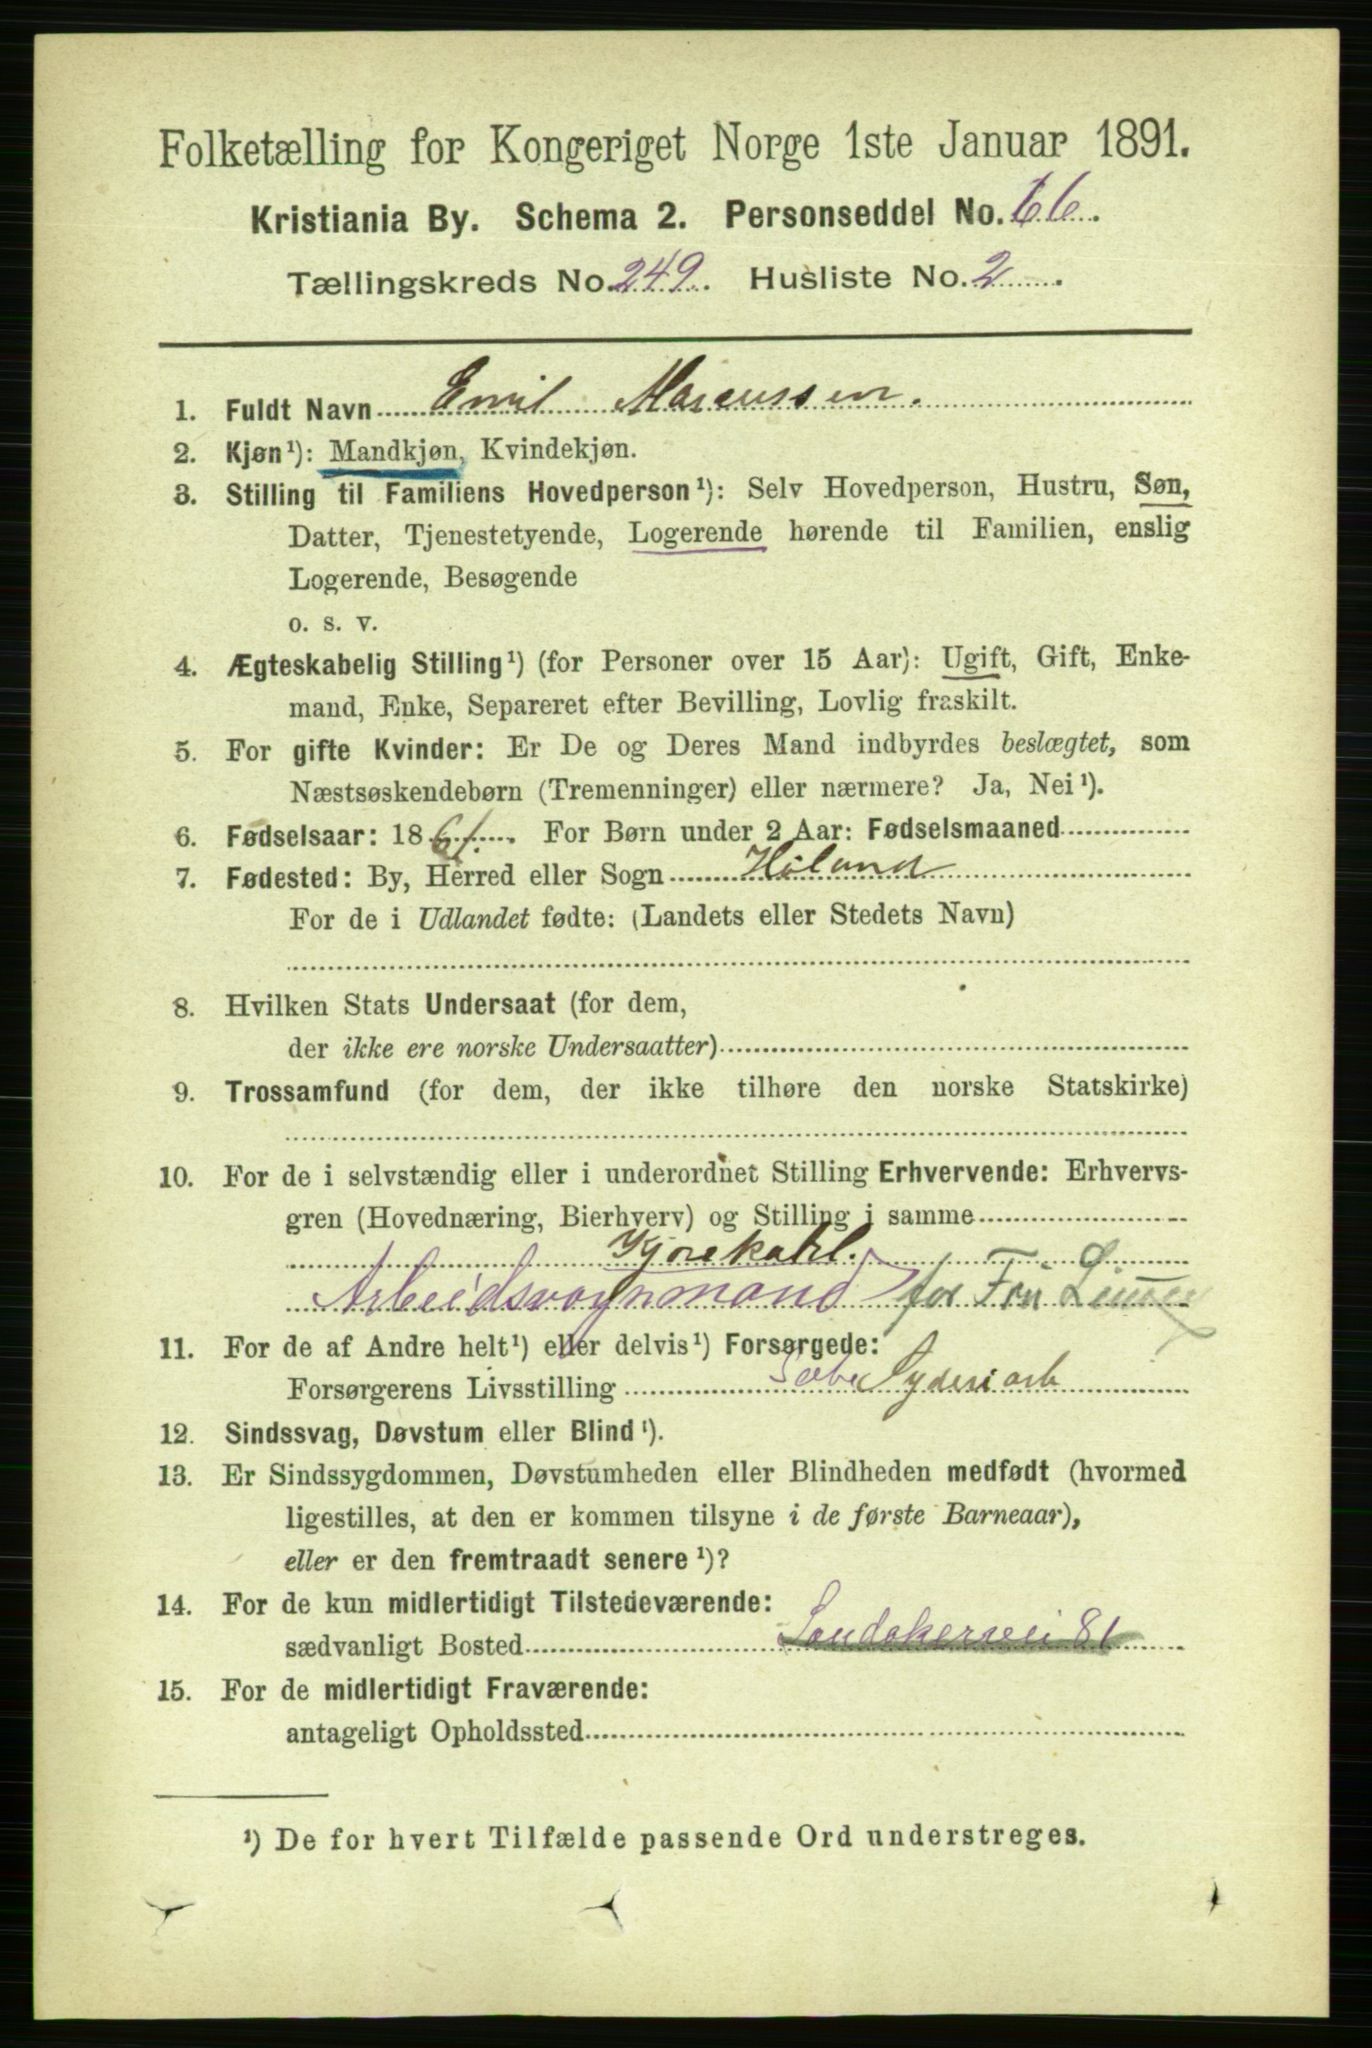 Folketælling for Kongeriget Norge 1ste Januar 1891.
Kristiania By. Schema 2. Personseddel No. 66.
Tællingskreds No. 249. Husliste No. 2.
1. Fuldt Navn Emil Marcussen.
2. Kjøn¹): Mandkjøn, Kvindekjøn.
3. Stilling til Familiens Hovedperson¹): Selv Hovedperson, Hustru, Søn,
Datter, Tjenestetyende, Logerende hørende til Familien, enslig
Logerende, Besøgende
o. s. v.
4. Ægteskabelig Stilling¹) (for Personer over 15 Aar): Ugift, Gift, Enke-
mand, Enke, Separeret efter Bevilling, Lovlig fraskilt.
5. For gifte Kvinder: Er De og Deres Mand indbyrdes beslægtet, som
Næstsøskendebørn (Tremenninger) eller nærmere? Ja, Nei¹).
6. Fødselsaar: 1861. For Børn under 2 Aar: Fødselsmaaned
7. Fødested: By, Herred eller Sogn Høland
For de i Udlandet fødte: (Landets eller Stedets Navn)
8. Hvilken Stats Undersaat (for dem,
der ikke ere norske Undersaatter)
9. Trossamfund (for dem, der ikke tilhøre den norske Statskirke)
10. For de i selvstændig eller i underordnet Stilling Erhvervende: Erhvervs-
gren (Hovednæring, Bierhverv) og Stilling i samme
Kjørekarl.
Arbeidsvognmand for
11. For de af Andre helt¹) eller delvis¹) Forsørgede:
Forsørgerens Livsstilling
12. Sindssvag, Døvstum eller Blind¹).
13. Er Sindssygdommen, Døvstumheden eller Blindheden medfødt (hvormed
ligestilles, at den er kommen tilsyne i de første Barneaar),
eller er den fremtraadt senere¹)?
14. For de kun midlertidigt Tilstedeværende:
sædvanligt Bosted Sandakervei 81
15. For de midlertidigt Fraværende:
antageligt Opholdssted
¹) De for hvert Tilfælde passende Ord understreges.